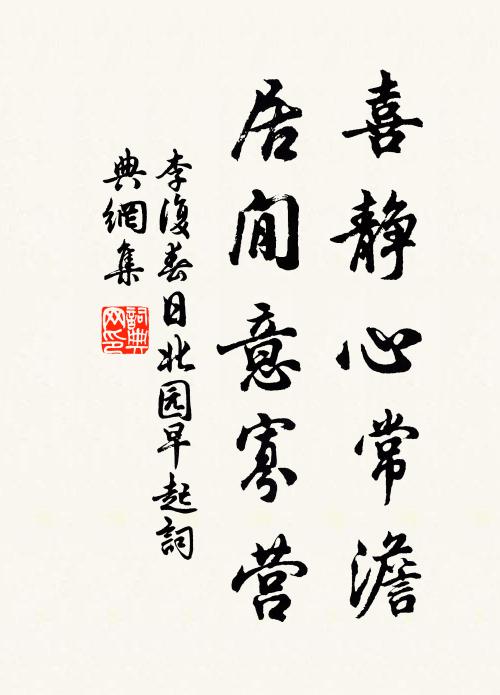 喜静心常澹
居闲意寡营
李復春日北园早起詞
典網集
詞典网印